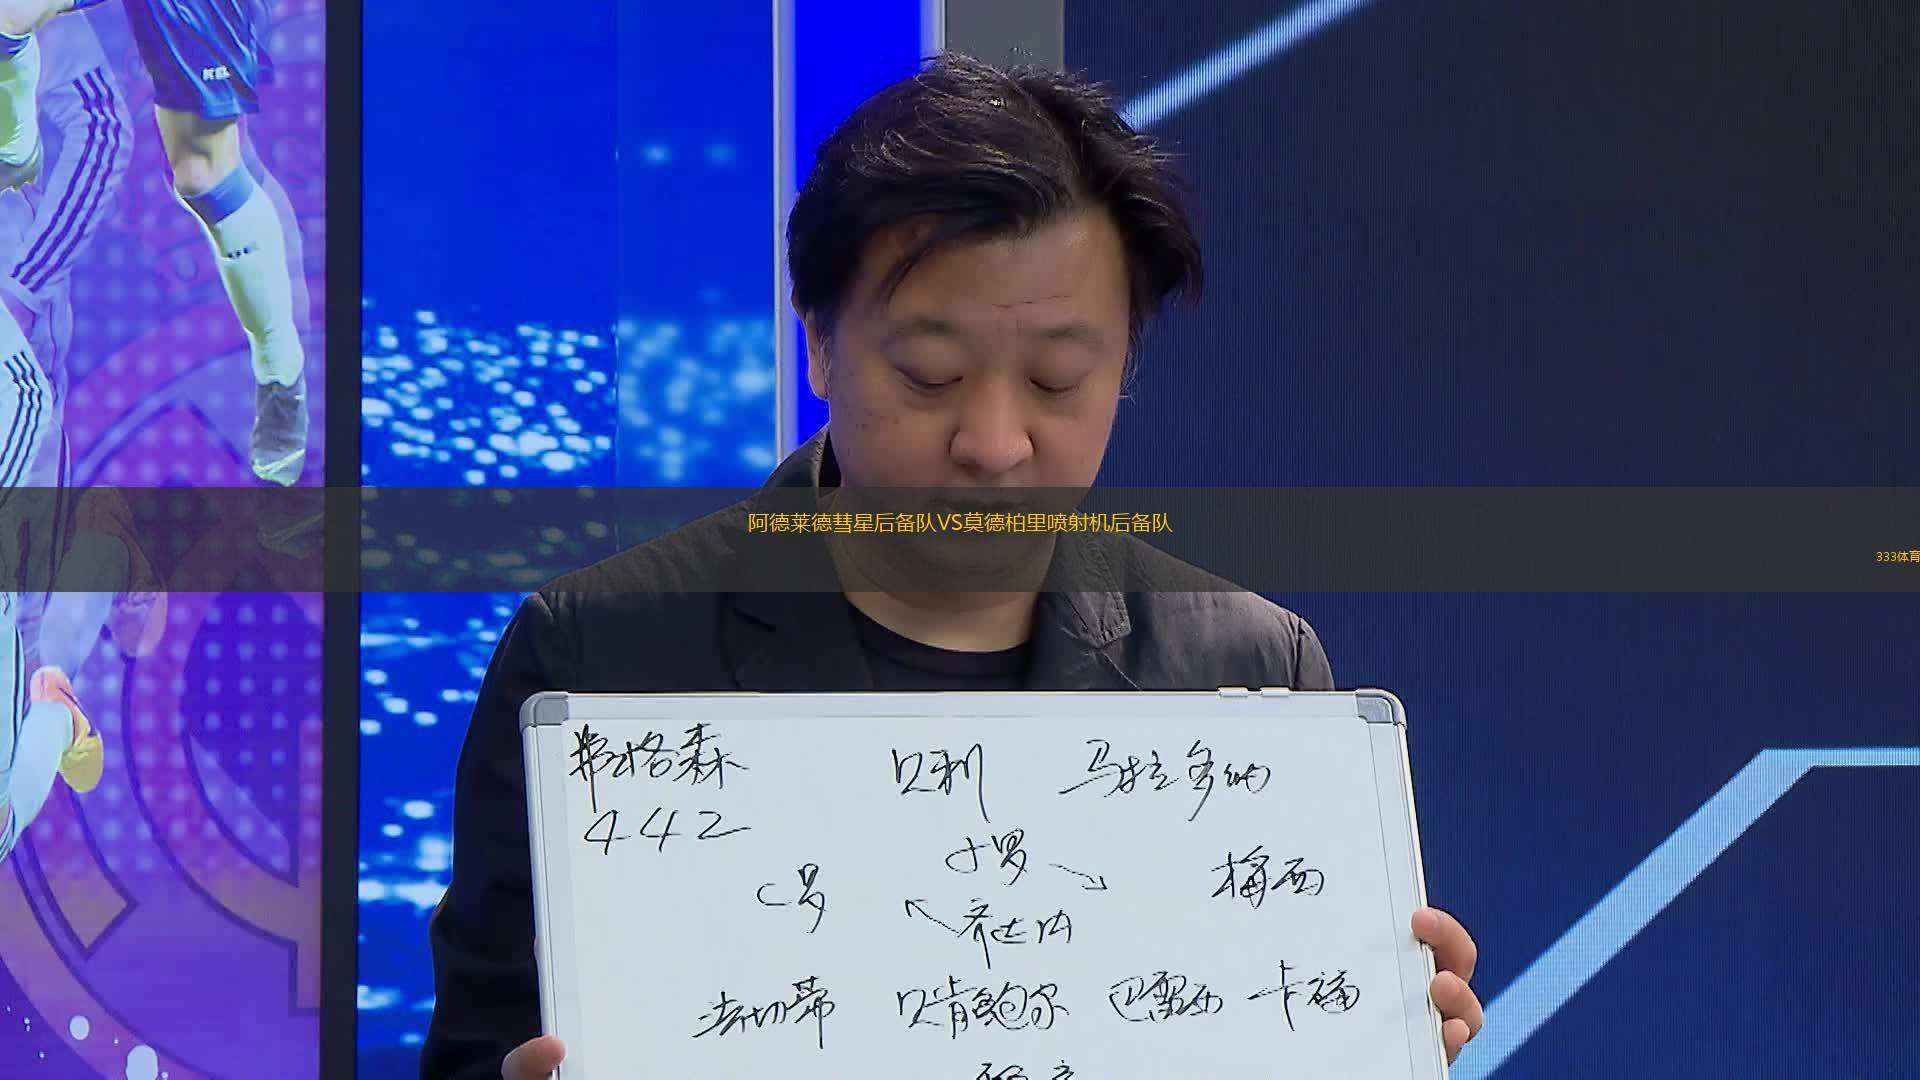 阿德莱德彗星后备队VS莫德柏里喷射机后备队
333体育
弗格森
442
贝利 马拉多纳
小罗
C罗 梅西
齐达内
法切蒂 贝肯鲍尔 巴雷西 卡福